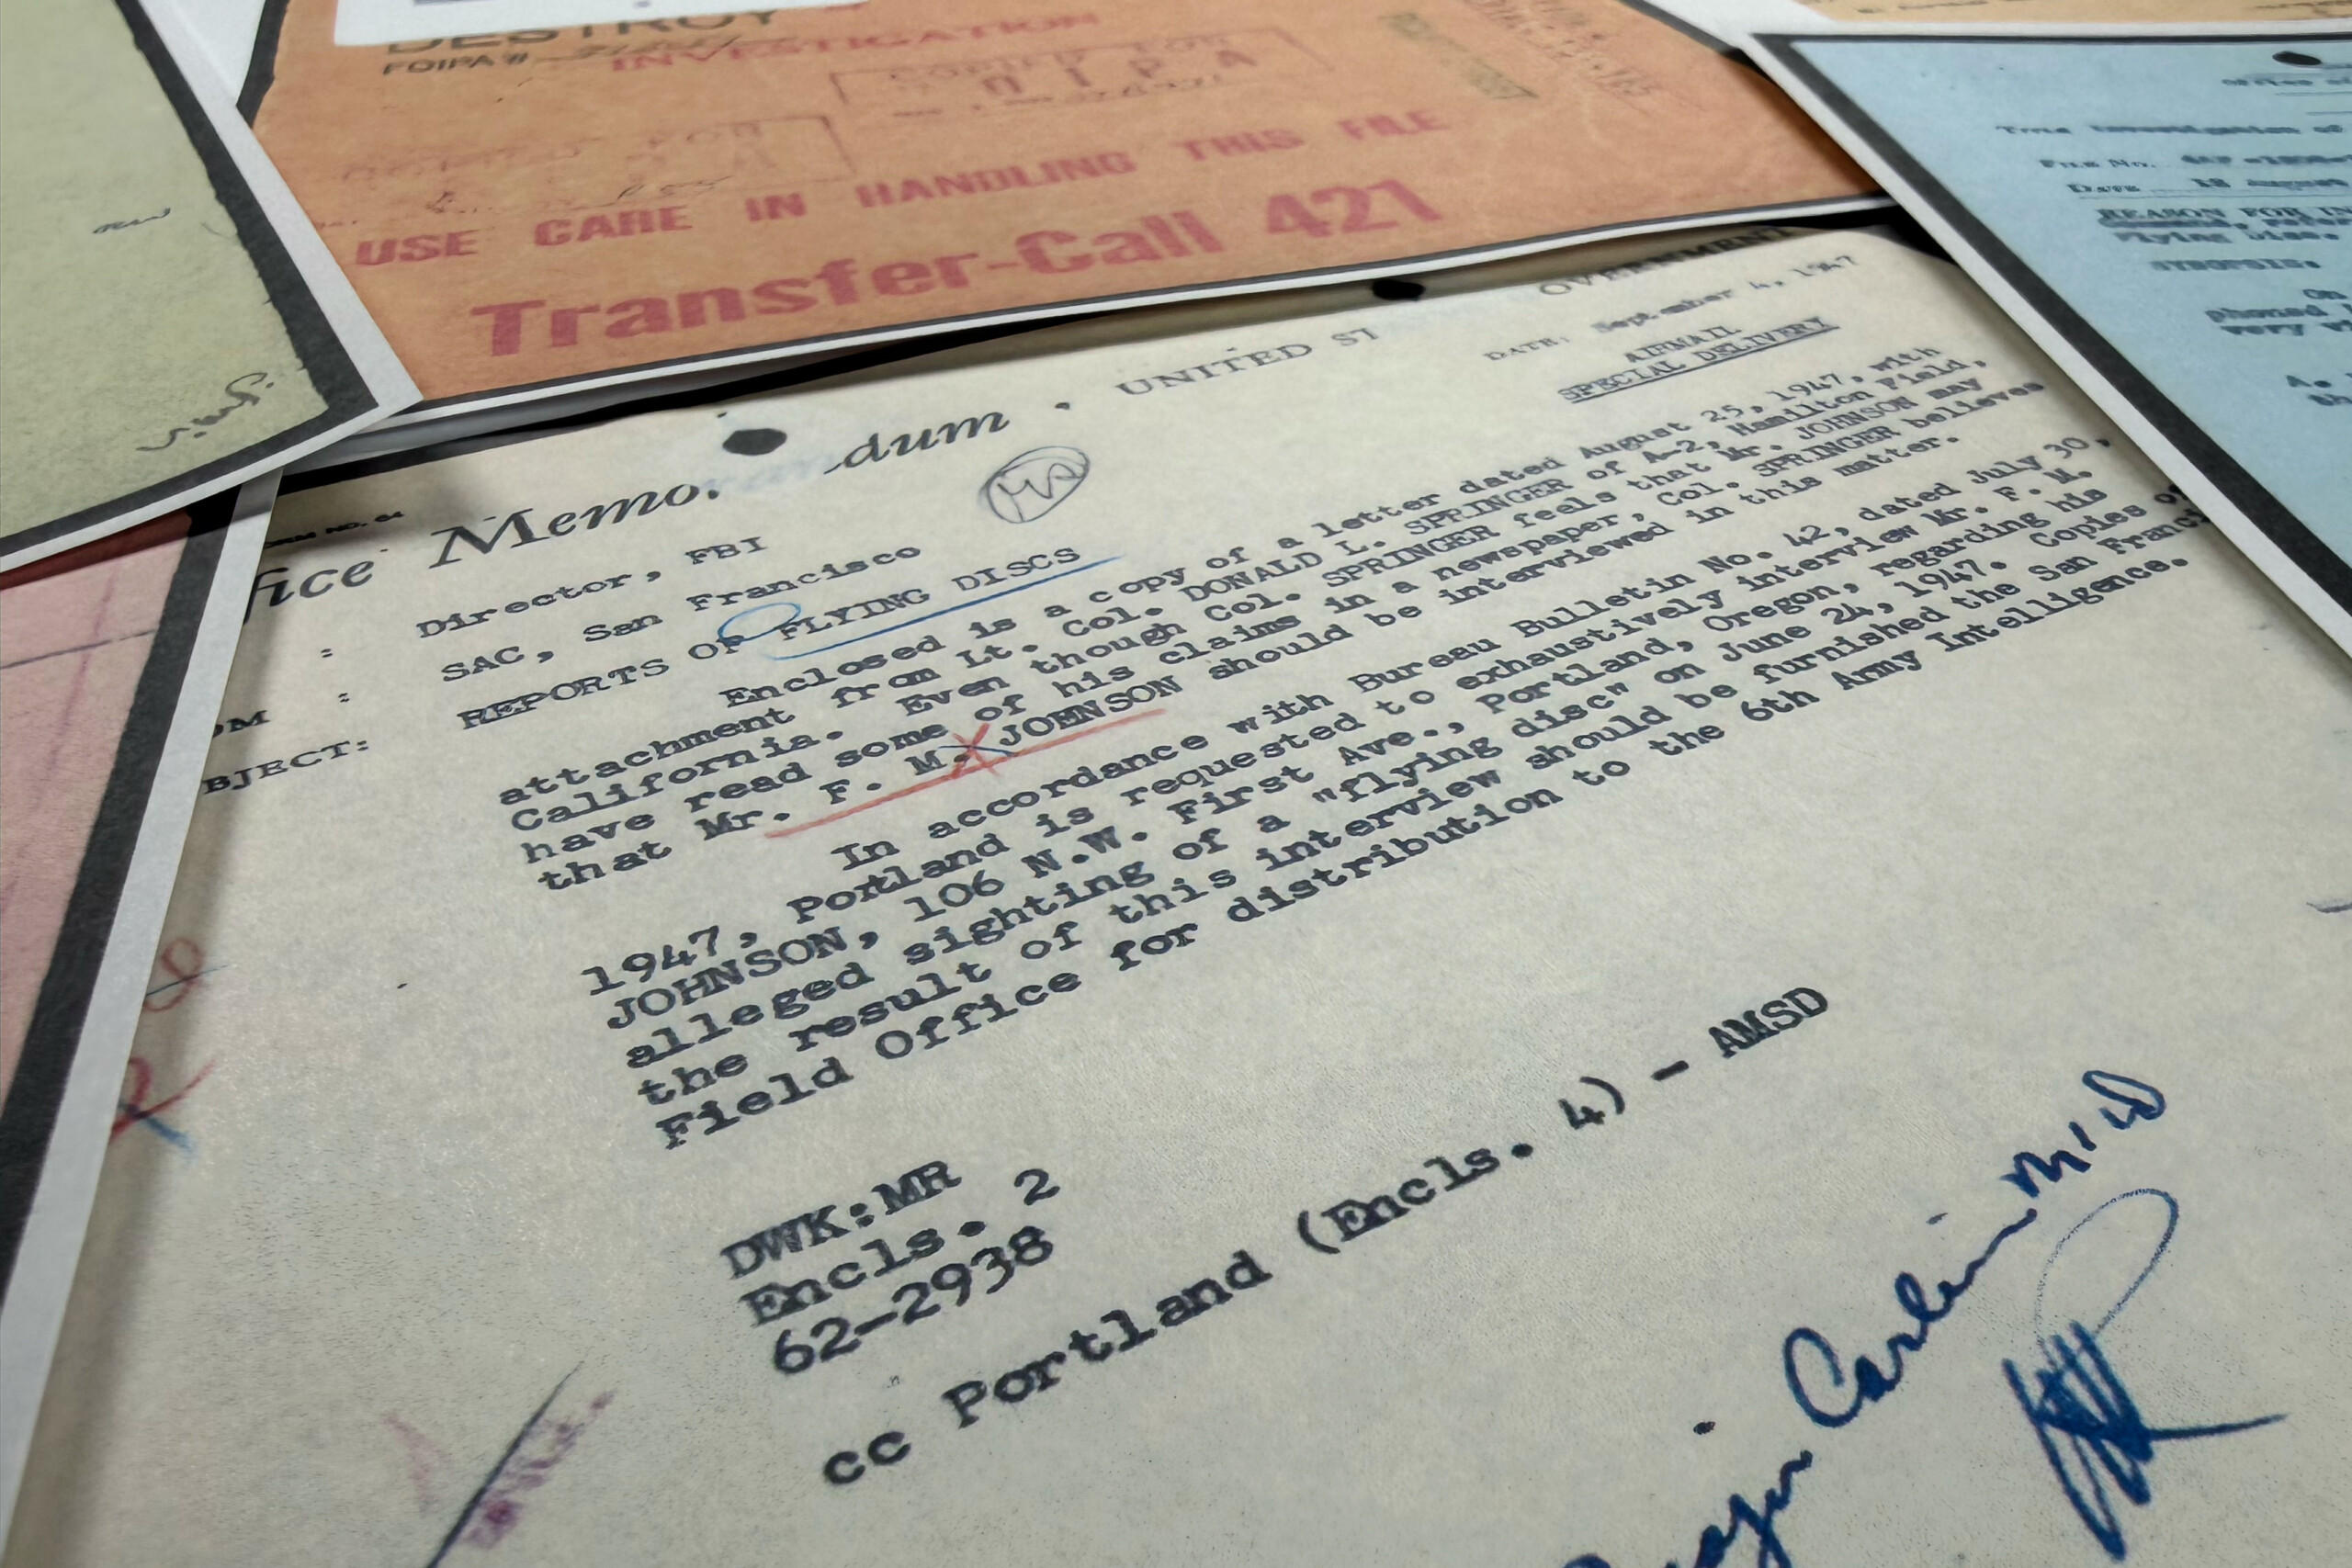 DESTROY
FOIPA #
INVESTIGATION
COPIED FOR
USE CARE IN HANDLING THIS FILE
Transfer-Call 421
File No.
Date 18 August
REASON FOR
Flying Disc.
SYNOPSIS:
phoned
very
UNITED ST
OVERNMENT
DATE: September 4, 1947
AIRMAIL
SPECIAL DELIVERY
fice Memo dum
: Director, FBI
OM : SAC, San Francisco
BJECT: REPORTS OF FLYING DISCS
Enclosed is a copy of a letter dated August 25, 1947, with
attachment from Lt. Col. DONALD L. SPRINGER of A-2, Hamilton Field,
California. Even though Col. SPRINGER feels that Mr. JOHNSON may
have read some of his claims in a newspaper, Col. SPRINGER believes
that Mr. F. M. JOHNSON should be interviewed in this matter.
In accordance with Bureau Bulletin No. 42, dated July 30,
1947, Portland is requested to exhaustively interview Mr. F. M.
JOHNSON, 106 N.W. First Ave., Portland, Oregon, regarding his
alleged sighting of a "flying disc" on June 24, 1947. Copies of
the result of this interview should be furnished the San Franci
Field Office for distribution to the 6th Army Intelligence.
DWK:MR
Encls. 2
62-2938
cc Portland (Encls. 4) - AMSD